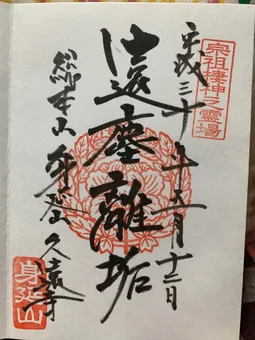 宗祖棲神之霊場
平成三十年六月十三日
遠塵離垢
総本山身延久遠寺
身延山